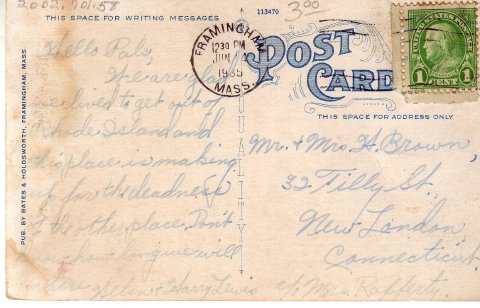 2002.701.58
113470
3.00
THIS SPACE FOR WRITING MESSAGES
Hello Pals,
We are glad
we lived to get out of
Rhode Island and
this place is making
up for the deadness
of the other place. Don't
know how long we will
be here Helen & Harry Lewis
PUB. BY BATES & HOLDSWORTH, FRAMINGHAM, MASS
QUALITY
FRAMINGHAM
12 30 PM
JUN
1935
MASS.
POST
CARD
UNITED STATES POSTAGE
1 1
CENT
THIS SPACE FOR ADDRESS ONLY
Mr. & Mrs. H. Brown,
32 Tilly St.,
New London,
Connecticut,
c/o Mrs. Rafferty